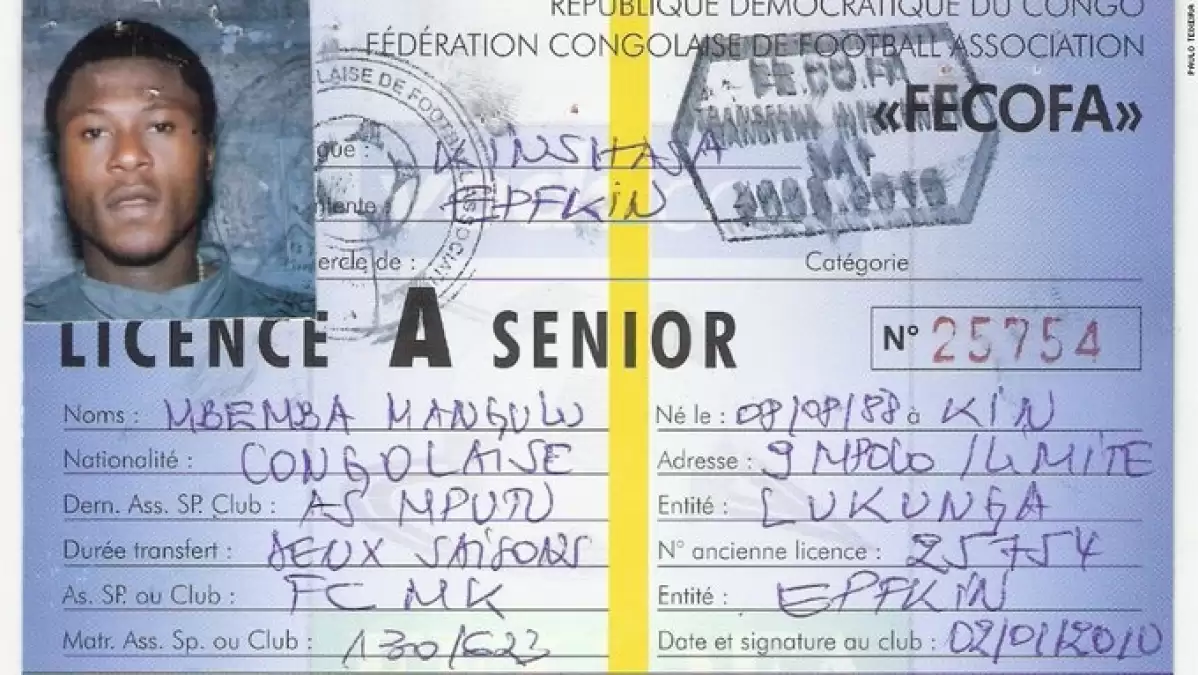 RÉPUBLIQUE DÉMOCRATIQUE DU CONGO
FÉDÉRATION CONGOLAISE DE FOOTBALL ASSOCIATION
«FECOFA»
PAULO TEIXEIRA
LAISE DE FOOTBALL ASSOCIATI
FE.CO.FA
gue : KINSHASA
EPFKIN
ercle de : Catégorie
LICENCE A SENIOR
N° 25754
Noms : MBEMBA MANGULU Né le : 08/08/88 à KIN
Nationalité : CONGOLAISE Adresse : 9 MPOLO / LIMITE
Dern. Ass. SP. Club : AS MPUTU Entité : LUKUNGA
Durée transfert : DEUX SAISONS N° ancienne licence : 25754
As. SP. ou Club : FC MK Entité : EPFKIN
Matr. Ass. Sp. ou Club : 130/623 Date et signature au club : 02/01/2010